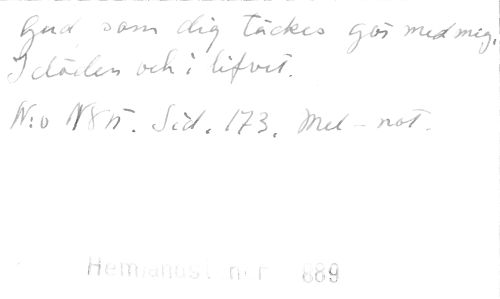 Gud som dig täckes gör med mig.
I döden och i lifvet.
N:o N85. Sid. 173. Mel-not.
nr 889